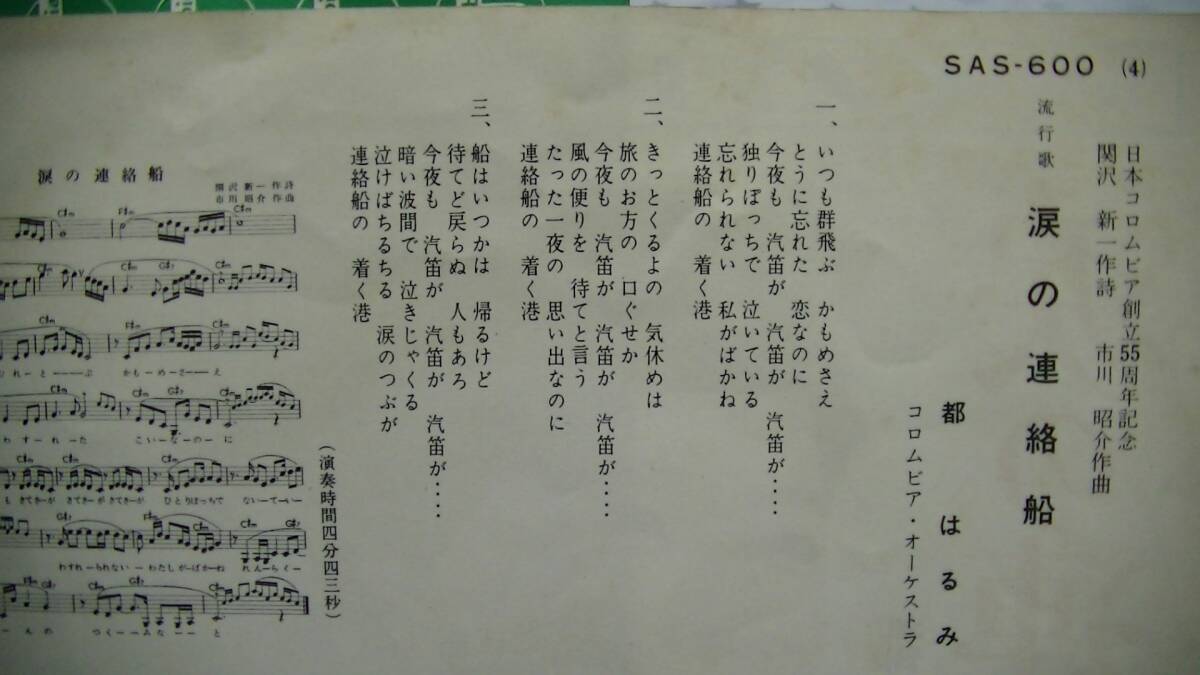 SAS-600 (4)
日本コロムビア創立55周年記念
関沢 新一作詩 市川 昭介作曲
流行歌 涙の連絡船
都 はるみ
コロムビア・オーケストラ
一、いつも群飛ぶ かもめさえ
とうに忘れた 恋なのに
今夜も 汽笛が 汽笛が 汽笛が‥‥
独りぽっちで 泣いている
忘れられない 私がばかね
連絡船の 着く港
二、きっとくるよの 気休めは
旅のお方の 口ぐせか
今夜も 汽笛が 汽笛が 汽笛が‥‥
風の便りを 待てと言う
たった一夜の 思い出なのに
連絡船の 着く港
三、船はいつかは 帰るけど
待てど戻らぬ 人もあろ
今夜も 汽笛が 汽笛が 汽笛が‥‥
暗い波間で 泣きじゃくる
泣けばちるちる 涙のつぶが
連絡船の 着く港
(演奏時間四分四三秒)
涙の連絡船
関沢新一作詩
市川昭介作曲
C#m F#m C#m
かもめーさーえ
わすーれーた こいーなーのーに
きてきーが きてきーが きてきーが ひとりぽっちで ないーてーいー
わすれーられない ーわたしがーばかーね れんーらくー
んの つくーーみなーーと